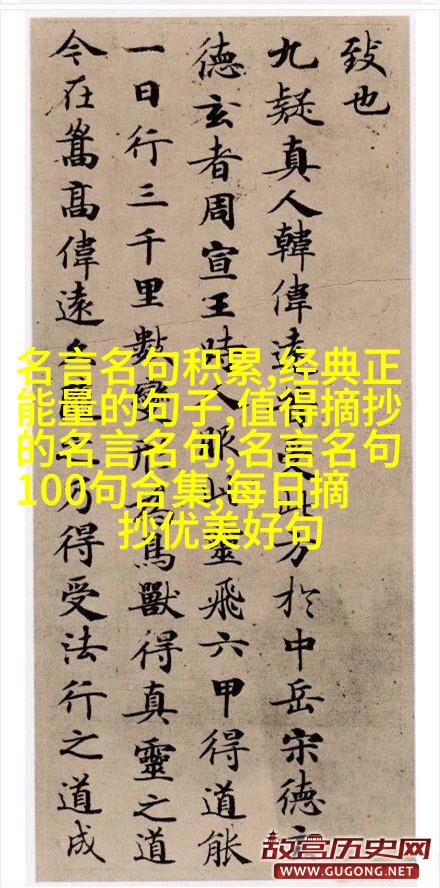 致也
九疑真人韓偉遠受此方於中岳宋德
德玄者周宣王時人服此靈飛六甲得道能
一日行三千里數變形為鳥獸得真靈之道
今在嵩高偉遠之乃得受法行之道成
名言名句积累,经典正
能量的句子,值得摘抄
的名言名句,名言名句
100句合集,每日摘
抄优美好句
故宫历史网
WWW.GUGONG.NET